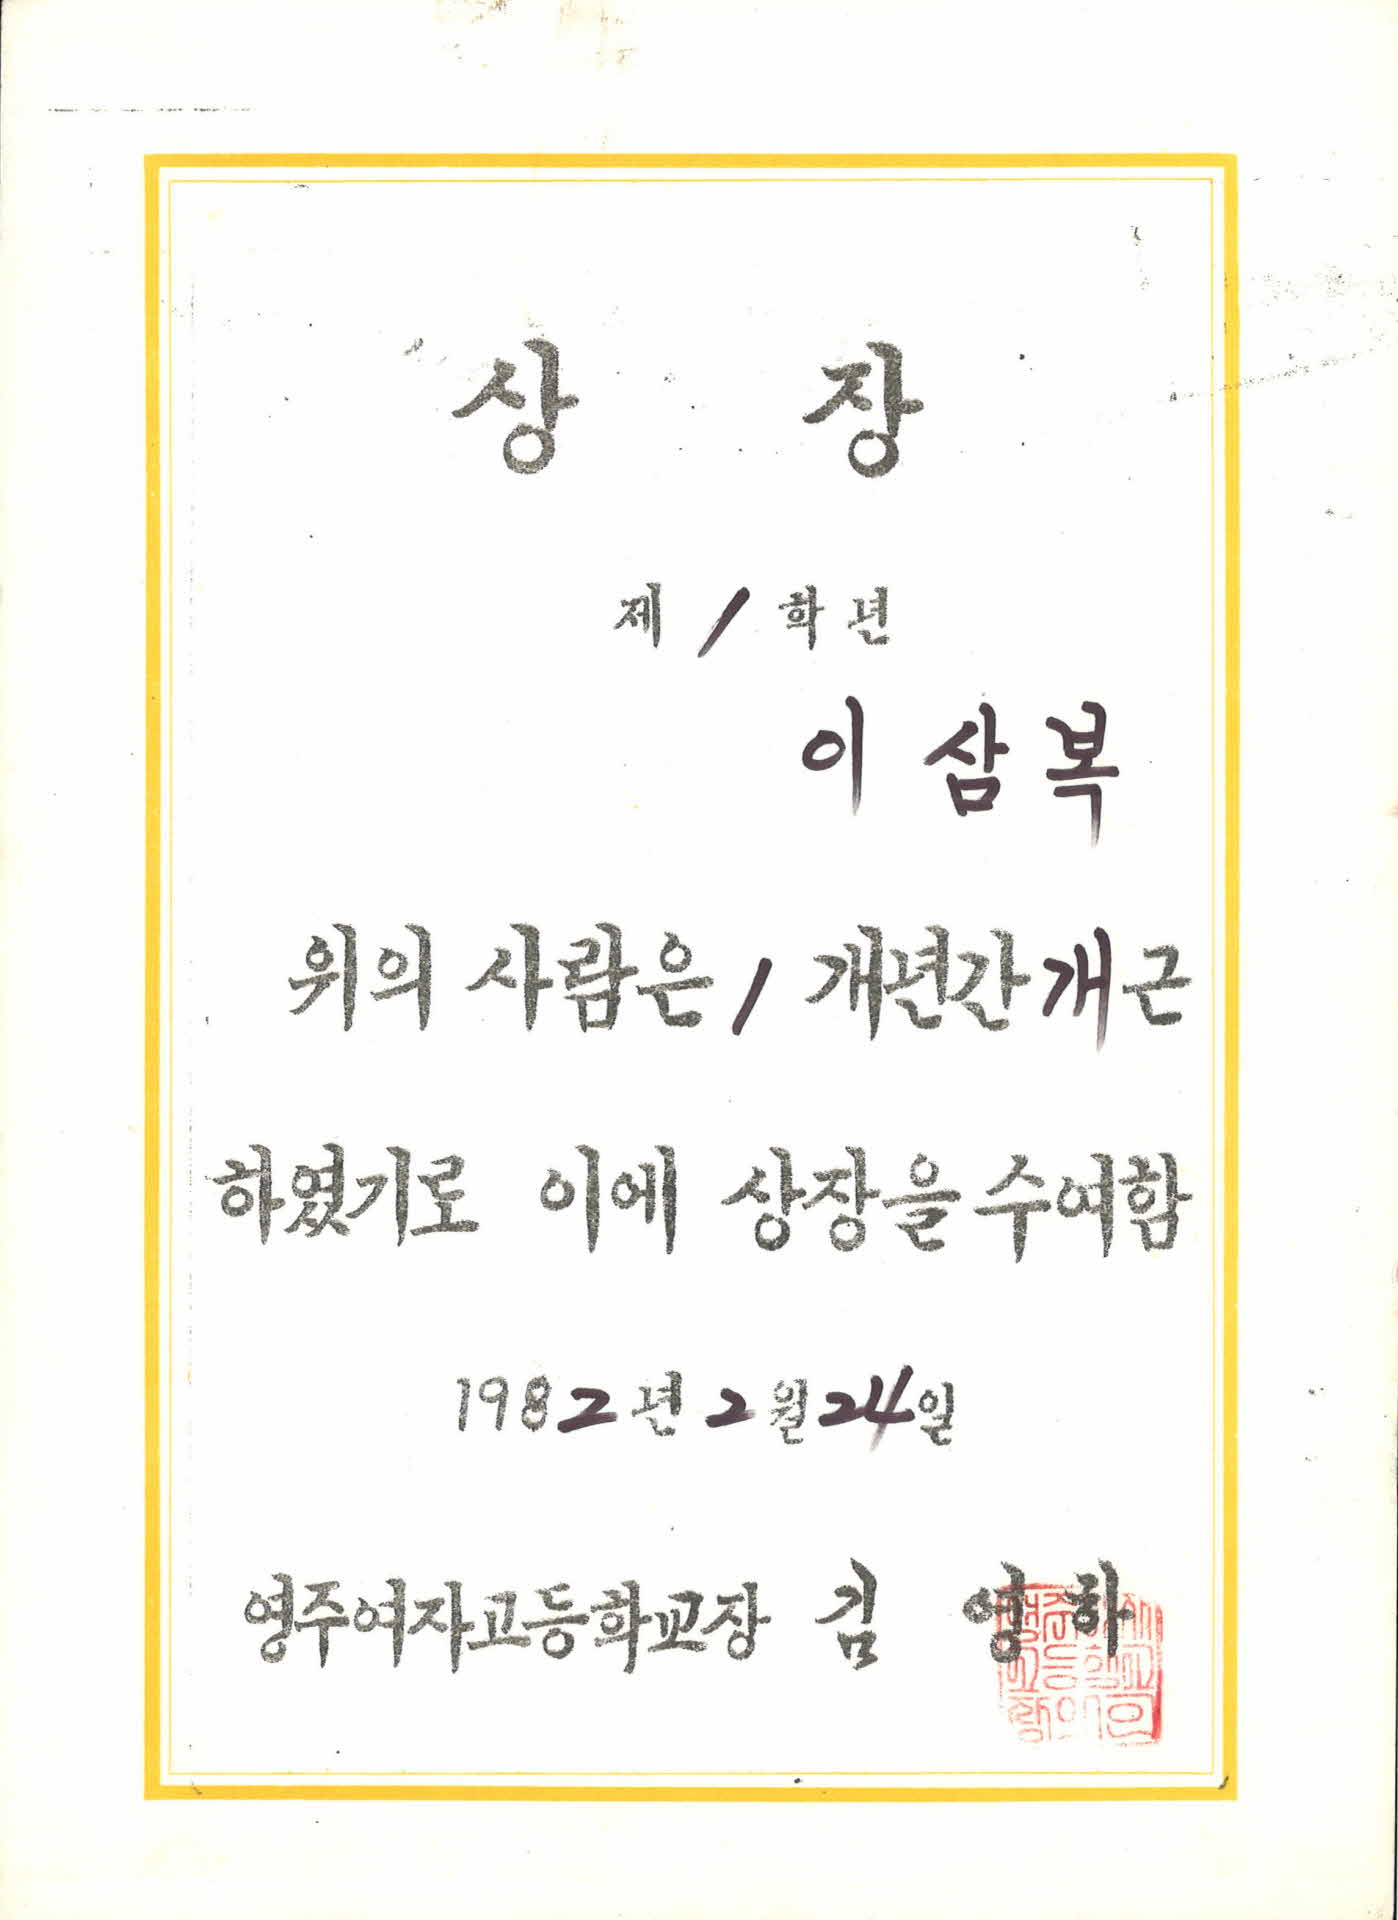 상 장
제 1 학년
이 삼 복
위의 사람은 1 개년간 개근
하였기로 이에 상장을 수여함
1982년 2월 24일
영주여자고등학교장 김 영하